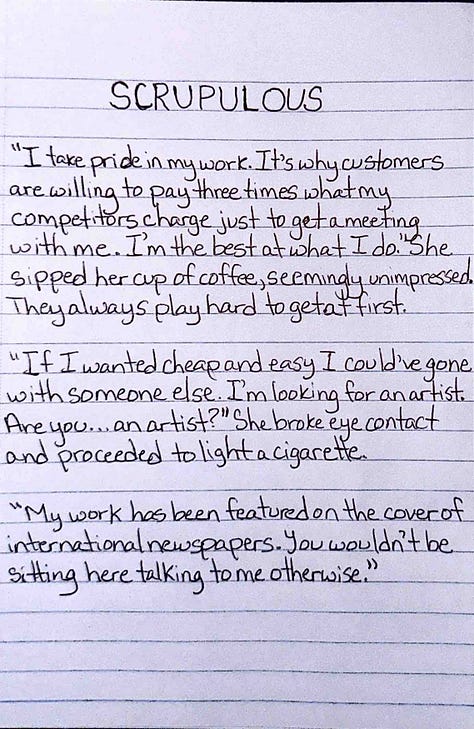 SCRUPULOUS
"I take pride in my work. It's why customers
are willing to pay three times what my
competitors charge just to get a meeting
with me. I'm the best at what I do." She
sipped her cup of coffee, seemingly unimpressed.
They always play hard to get at first.
"If I wanted cheap and easy I could've gone
with someone else. I'm looking for an artist.
Are you... an artist?" She broke eye contact
and proceeded to light a cigarette.
"My work has been featured on the cover of
international newspapers. You wouldn't be
sitting here talking to me otherwise."